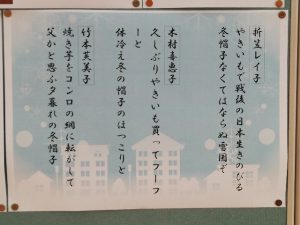 折笠レイ子
やきいもで戦後の日本生きのびる
冬帽子なくてはならぬ雪国で
木村喜恵子
久しぶりやきいも買ってフーフ
ーと
体冷え冬の帽子のほっこりと
竹本芙美子
焼き芋をコンロの網に転がして
父かと思ふ夕暮れの冬帽子